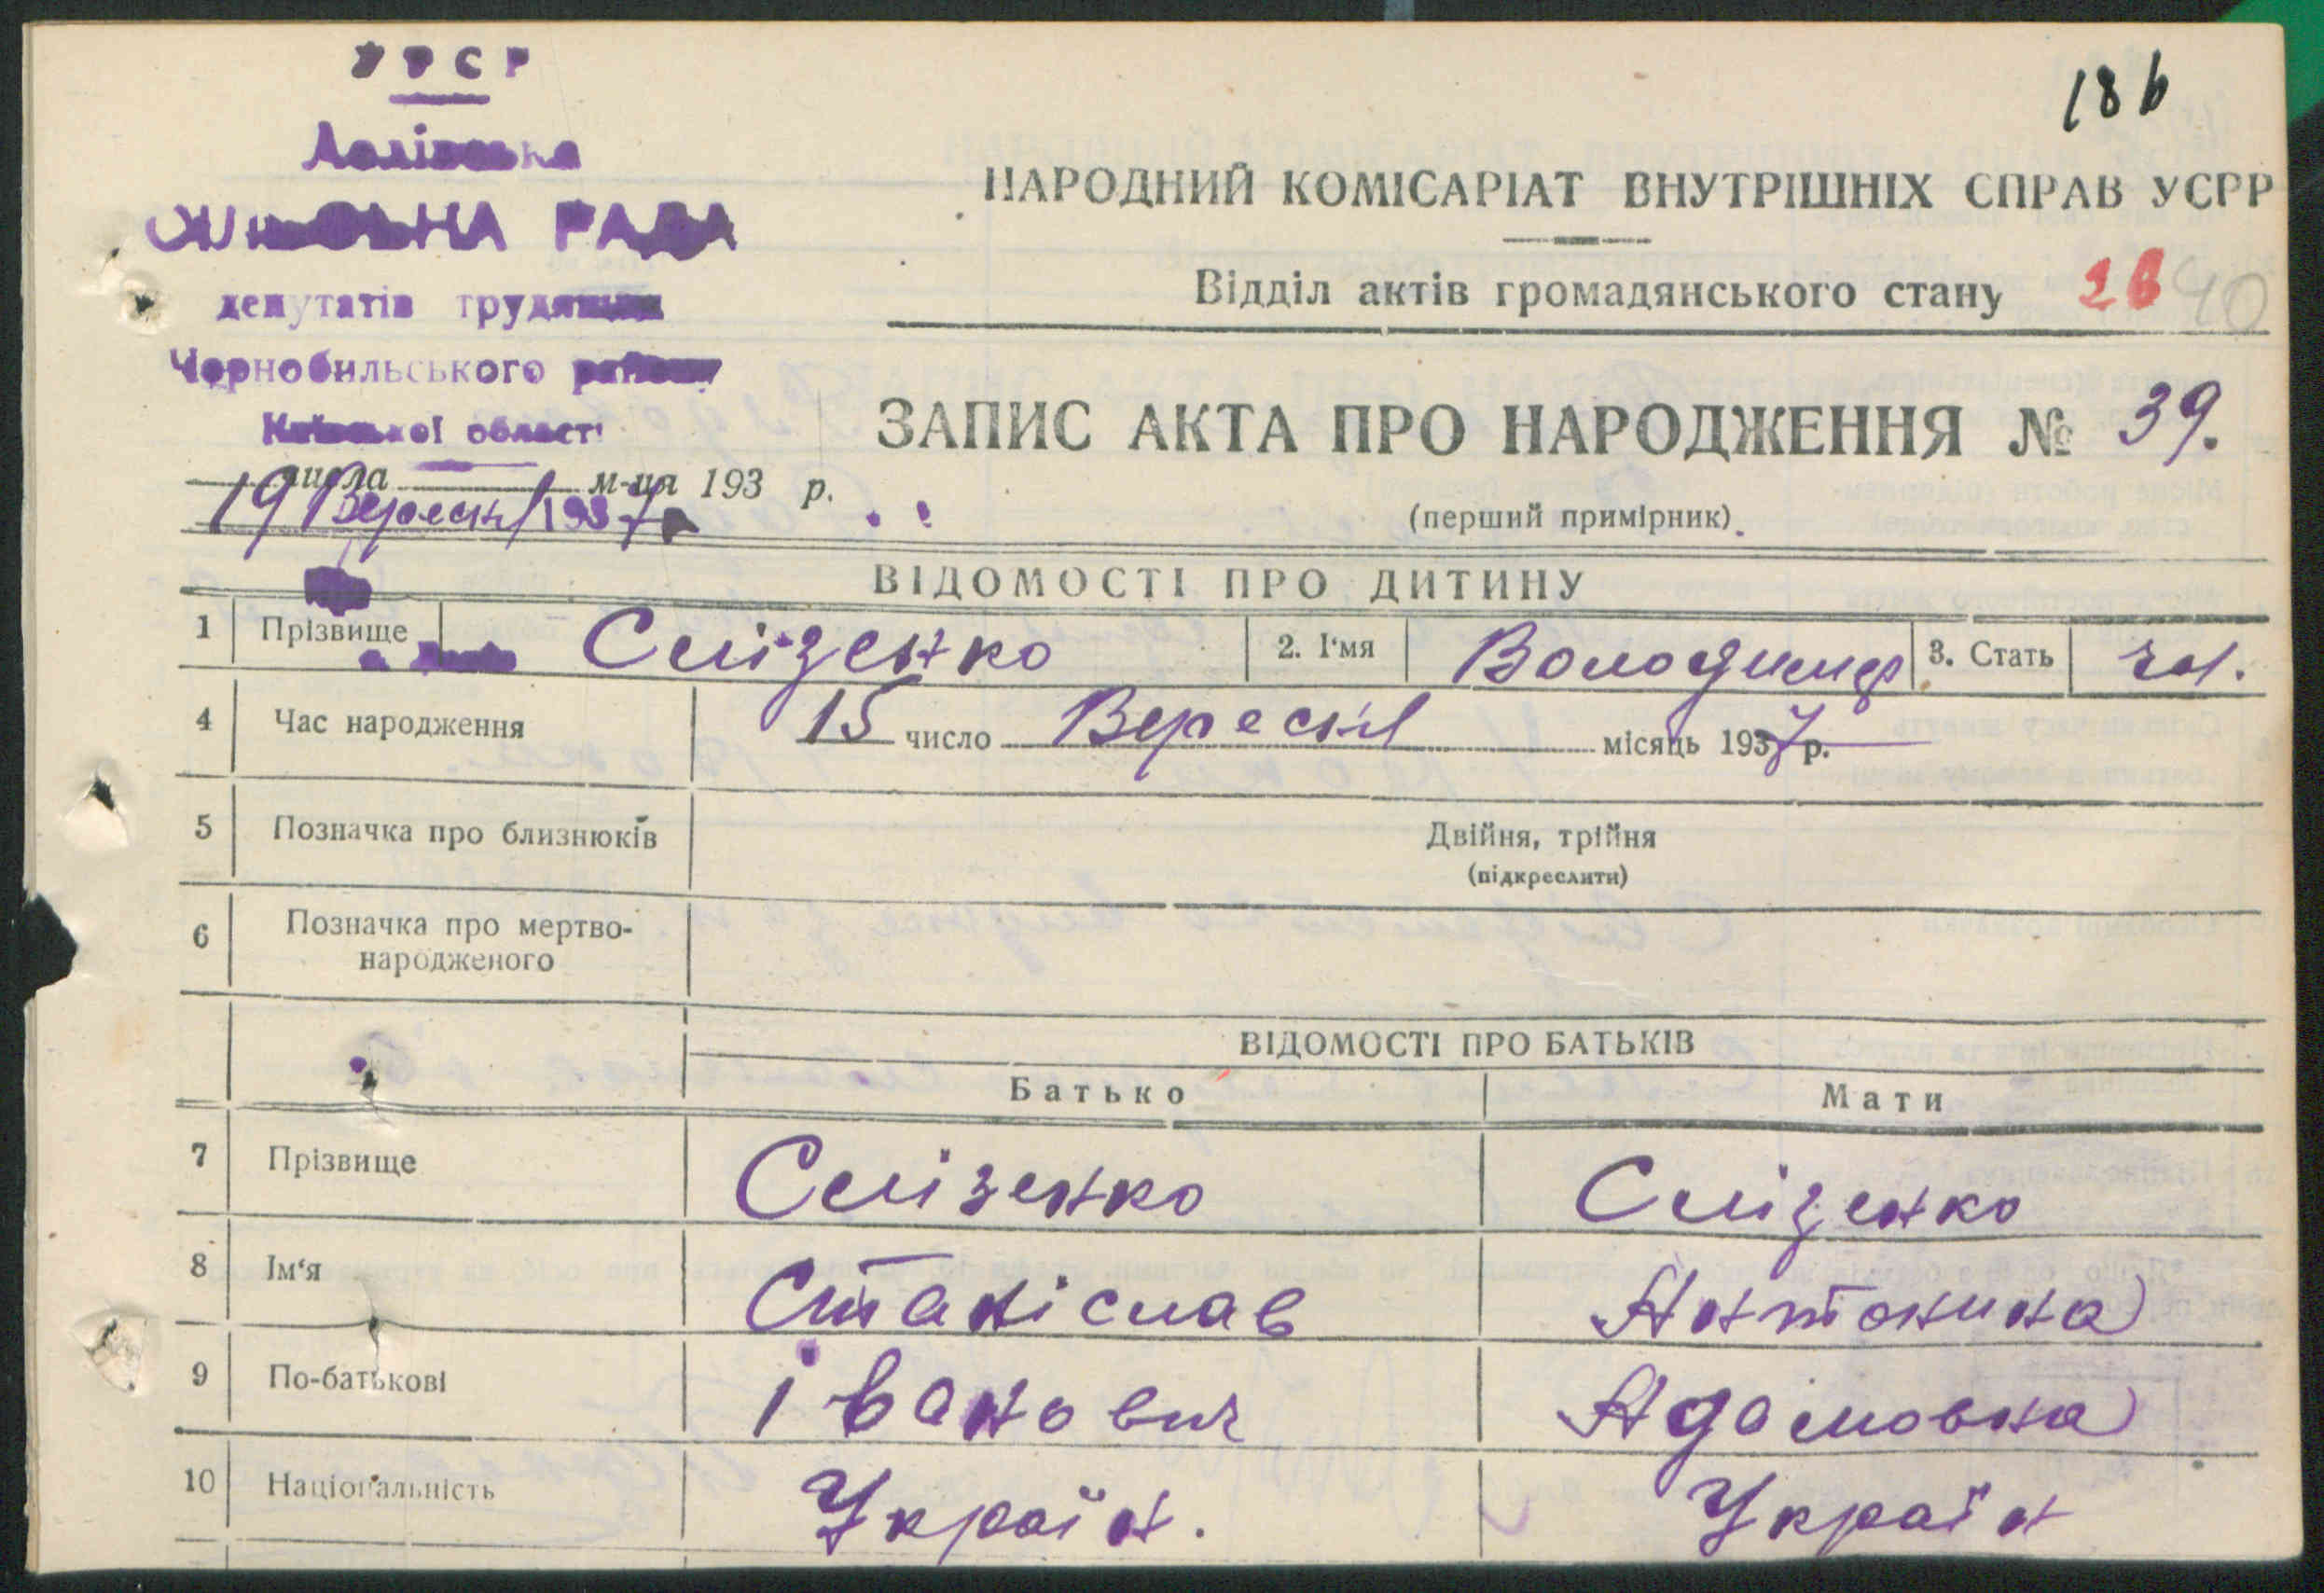 УРСР
РАДА
депутатів трудящих
Чорнобильського району
Київської області
числа м-ця 193 р.
19 Вересня 1937 р
186
НАРОДНИЙ КОМІСАРІАТ ВНУТРІШНІХ СПРАВ УСРР
Відділ актів громадянського стану 40
ЗАПИС АКТА ПРО НАРОДЖЕННЯ № 39.
(перший примірник)
ВІДОМОСТІ ПРО ДИТИНУ
1 Прізвище Слізенко 2. І'мя Володимир 3. Стать чол.
4 Час народження 15 число Вересня місяць 1937 р.
5 Позначка про близнюків Двійня, трійня
(підкреслити)
6 Позначка про мертво-
народженого
ВІДОМОСТІ ПРО БАТЬКІВ
Батько Мати
7 Прізвище Слізенко Слізенко
8 Ім'я Станіслав Антонина
9 По-батькові Іванович Адамовна
10 Національність Україн. Україн